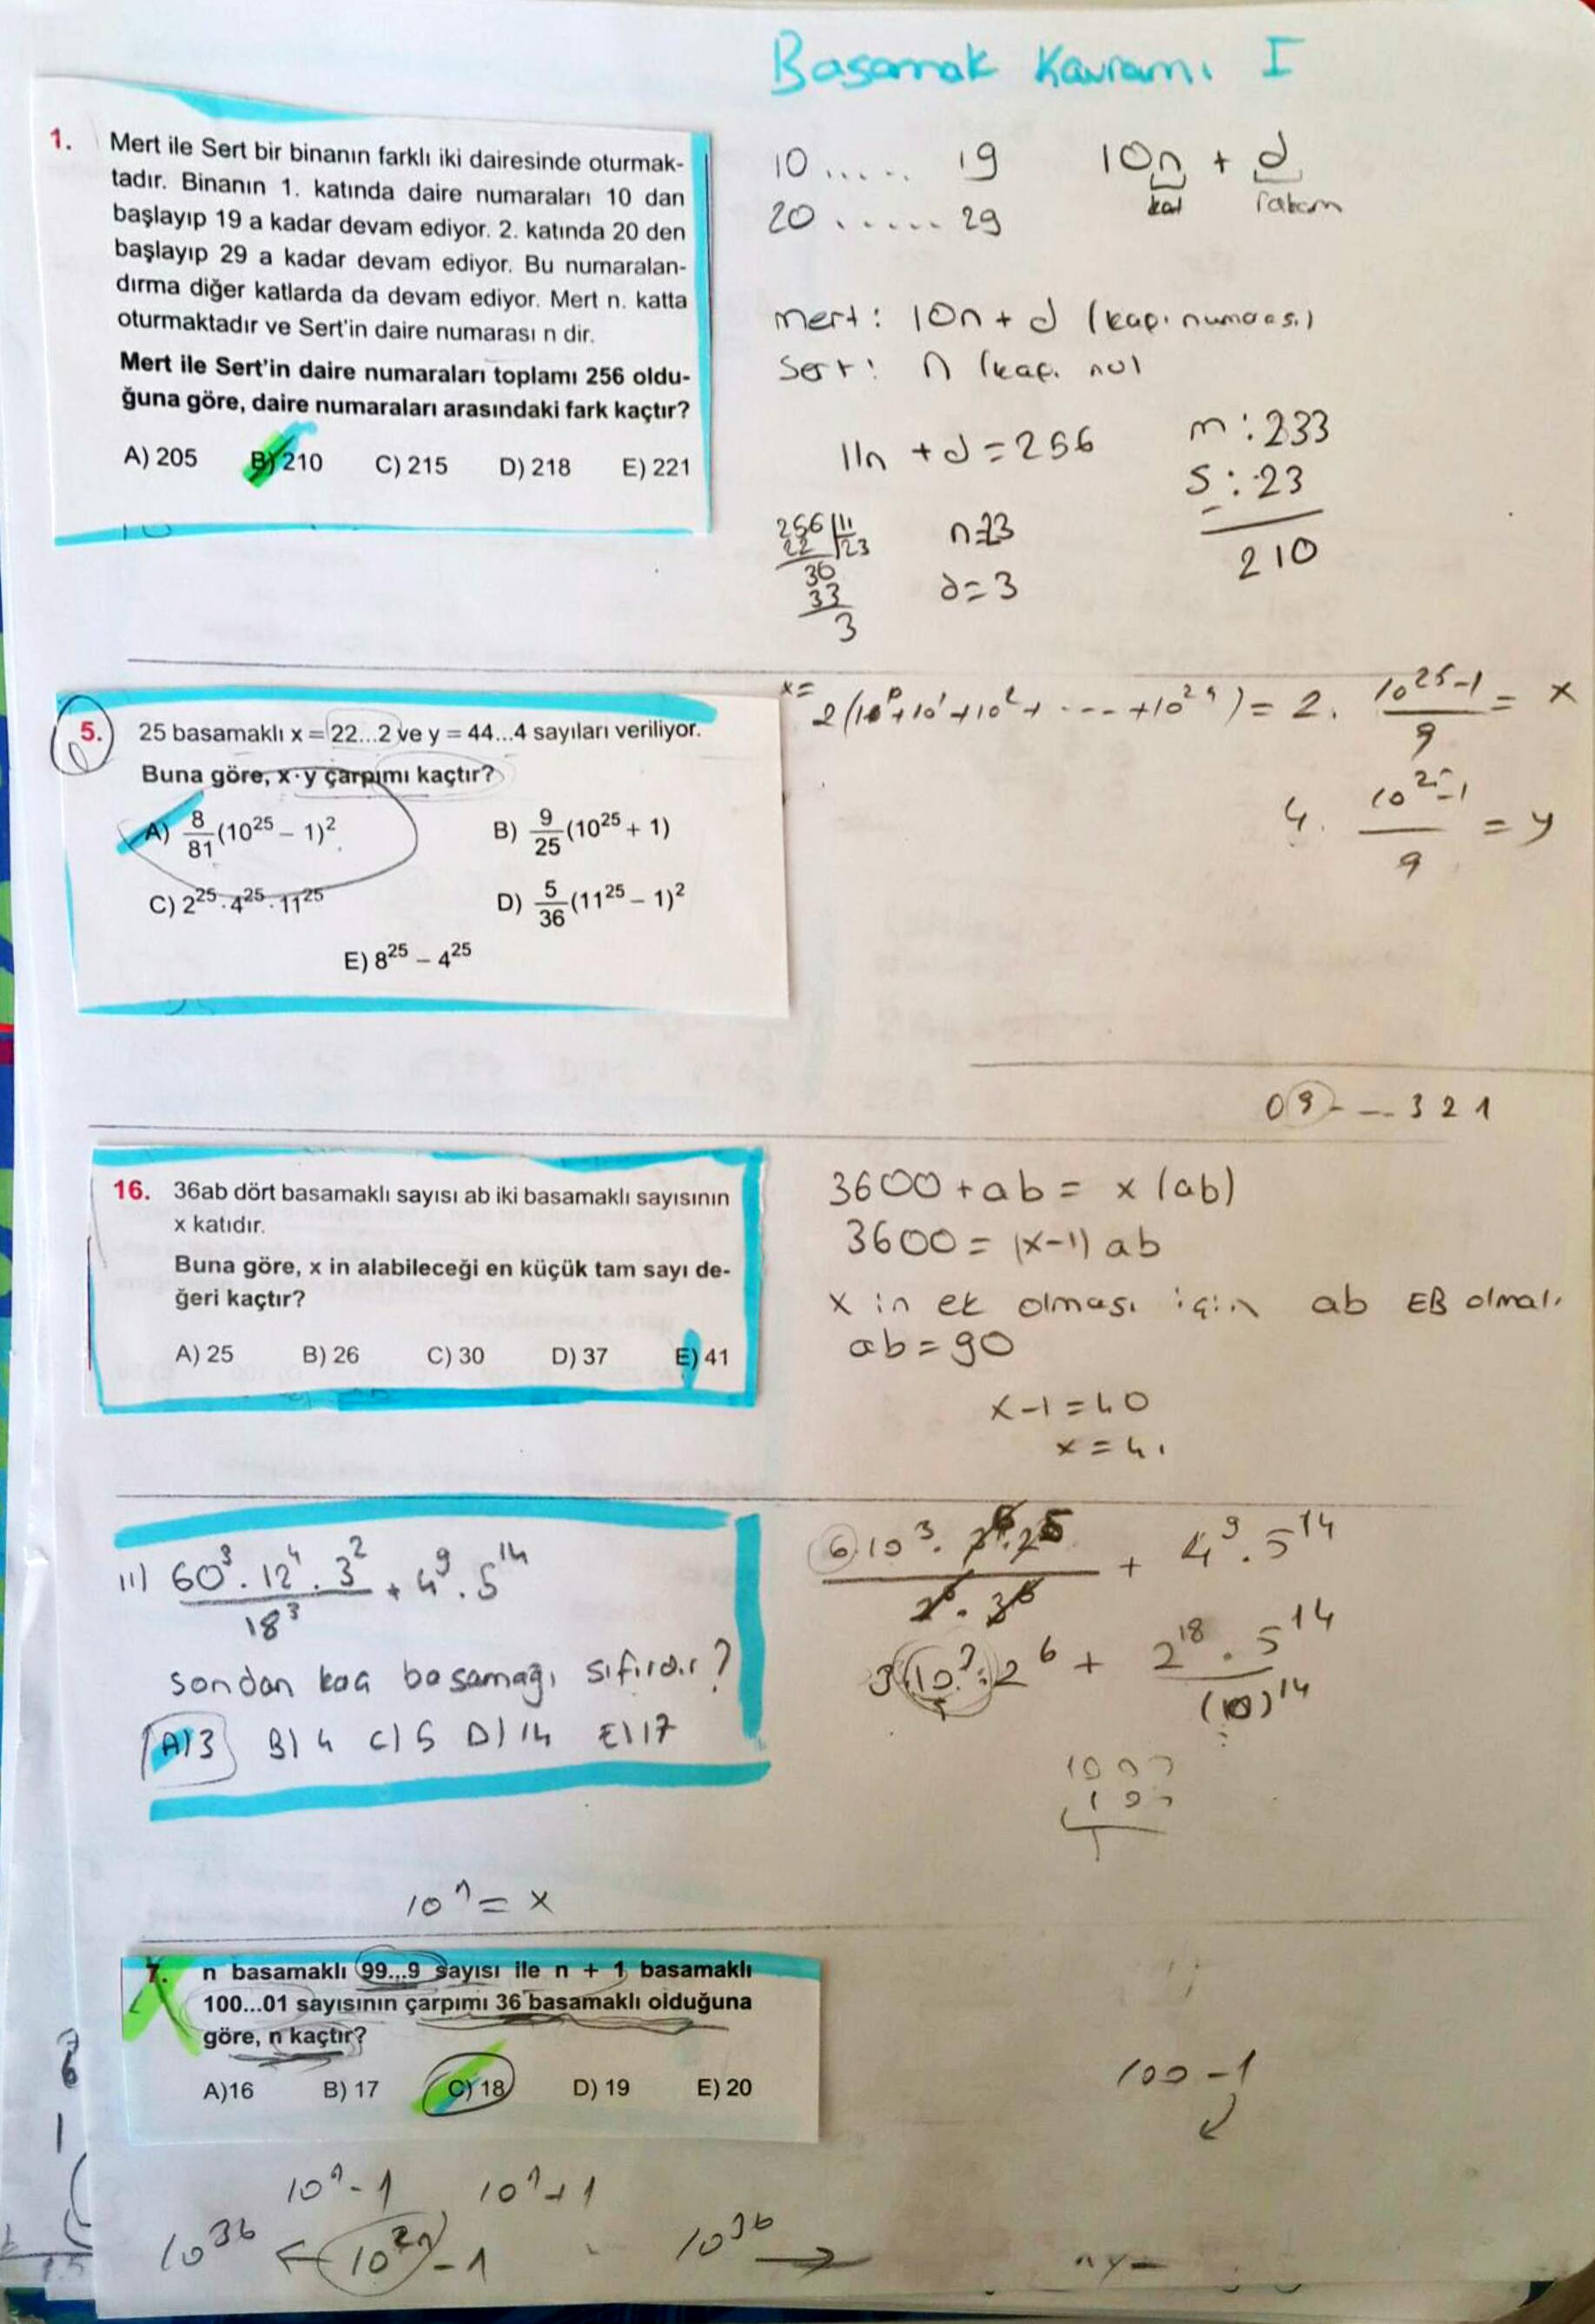 Basamak Kavramı I
1. Mert ile Sert bir binanın farklı iki dairesinde oturmak-
tadır. Binanın 1. katında daire numaraları 10 dan
başlayıp 19 a kadar devam ediyor. 2. katında 20 den
başlayıp 29 a kadar devam ediyor. Bu numaralan-
dırma diğer katlarda da devam ediyor. Mert n. katta
oturmaktadır ve Sert'in daire numarası n dir.
Mert ile Sert'in daire numaraları toplamı 256 oldu-
ğuna göre, daire numaraları arasındaki fark kaçtır?
A) 205 B) 210 C) 215 D) 218 E) 221
10 ..... 19 10n + d
kat rakam
20 ...... 29
mert : 10n + d (kapı numarası)
Sert : n (kapı no)
11n + d = 256
m : 233
S : 23
210
256 11
22 23
36
33
3
n=23
d=3
5. 25 basamaklı x = 22...2 ve y = 44...4 sayıları veriliyor.
Buna göre, x·y çarpımı kaçtır?
A) 8/81 (10²⁵ – 1)² B) 9/25 (10²⁵ + 1)
C) 2²⁵ . 4²⁵ . 11²⁵ D) 5/36 (11²⁵ – 1)²
E) 8²⁵ – 4²⁵
x= 2(10⁰+10¹+10²+ --- +10²⁴) = 2. 10²⁵-1/9 = x
4. 10²⁵-1/9 = y
09 - - 321
16. 36ab dört basamaklı sayısı ab iki basamaklı sayısının
x katıdır.
Buna göre, x in alabileceği en küçük tam sayı de-
ğeri kaçtır?
A) 25 B) 26 C) 30 D) 37 E) 41
3600 + ab = x (ab)
3600 = (x-1) ab
x in ek olması için ab EB olmalı
ab = 90
x-1 = 40
x = 41
11) 60³ . 12⁴ . 3²/18³ + 4⁹ . 5¹⁴
sondan kaç basamağı sıfırdır?
A) 3 B) 4 C) 5 D) 14 E) 17
+ 4⁹ . 5¹⁴
2⁶ + 2¹⁸ . 5¹⁴
(10)¹⁴
10ⁿ = x
7. n basamaklı 99...9 sayısı ile n + 1 basamaklı
100...01 sayısının çarpımı 36 basamaklı olduğuna
göre, n kaçtır?
A)16 B) 17 C) 18 D) 19 E) 20
100 - 1
10ⁿ - 1 10ⁿ + 1
10³⁶ ← 10²ⁿ - 1 10³⁶ →